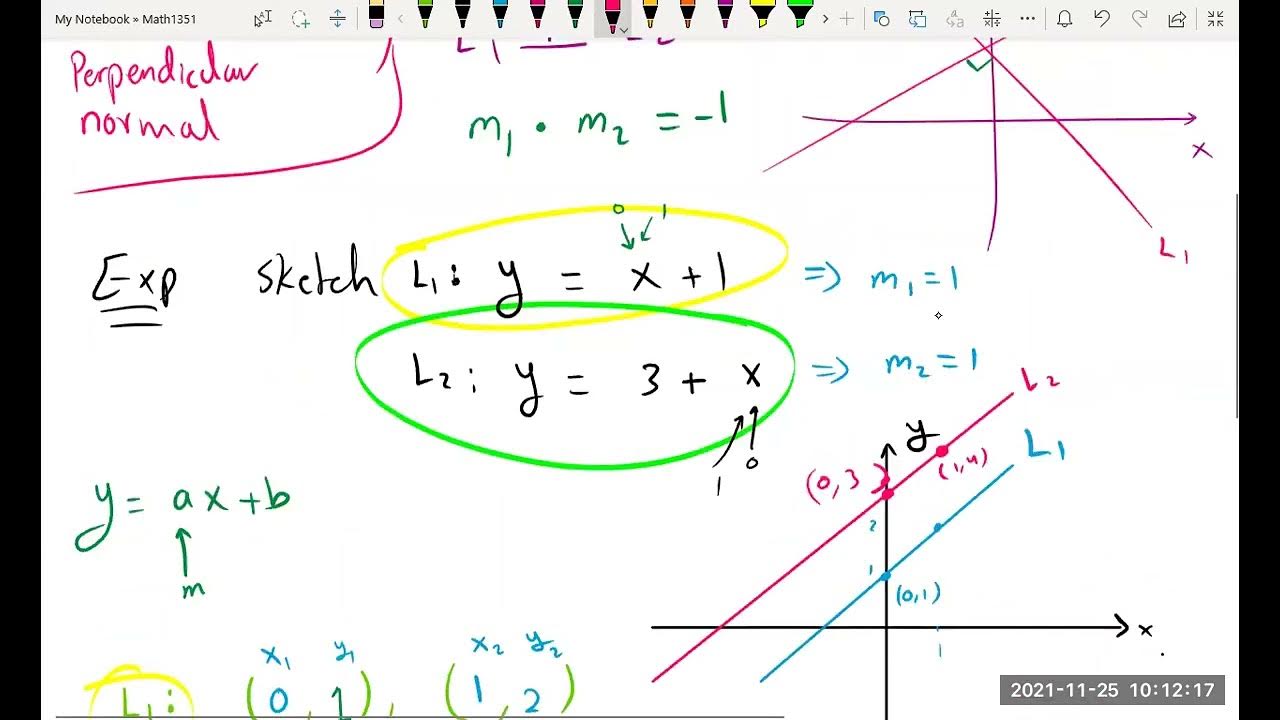 My Notebook » Math1351
Perpendicular
normal
m₁ · m₂ = -1
x
L₁
0 1
Exp sketch L₁: y = x + 1 => m₁ = 1
L₂: y = 3 + x => m₂ = 1
1 0
y = ax + b
m
y
L₂
L₁
(0, 3)
(1,4)
2
1
(0,1)
x
1
x₁ y₁ x₂ y₂
L₁: (0, 1), (1, 2)
2021-11-25 10:12:17